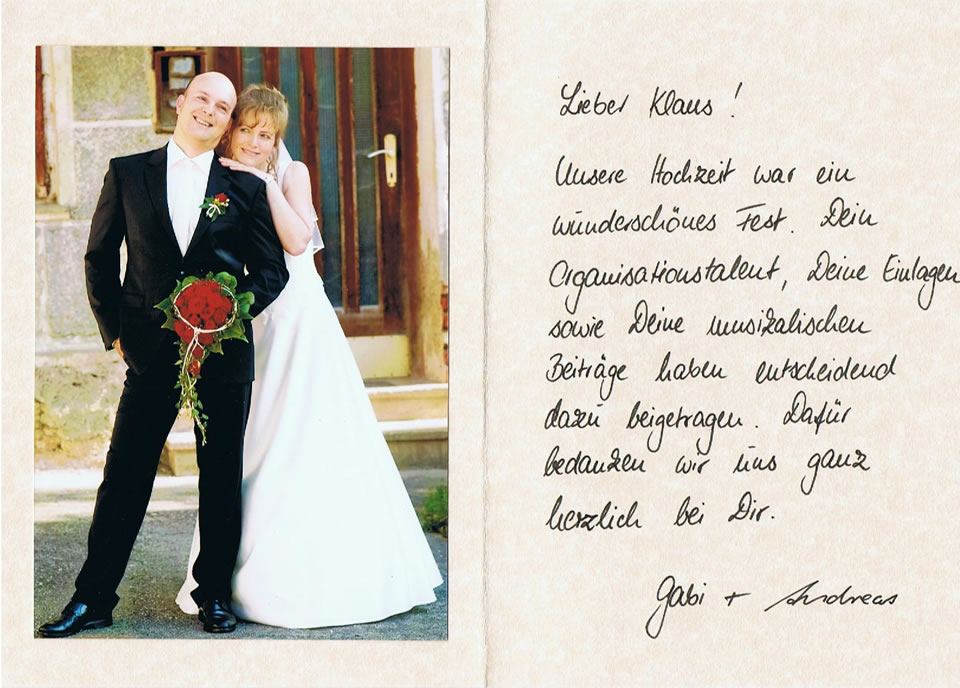 Lieber Klaus!
Unsere Hochzeit war ein
wunderschönes Fest. Dein
Organisationstalent, Deine Einlagen
sowie Deine musikalischen
Beiträge haben entscheidend
dazu beigetragen. Dafür
bedanken wir uns ganz
herzlich bei Dir.
Gabi + Andreas